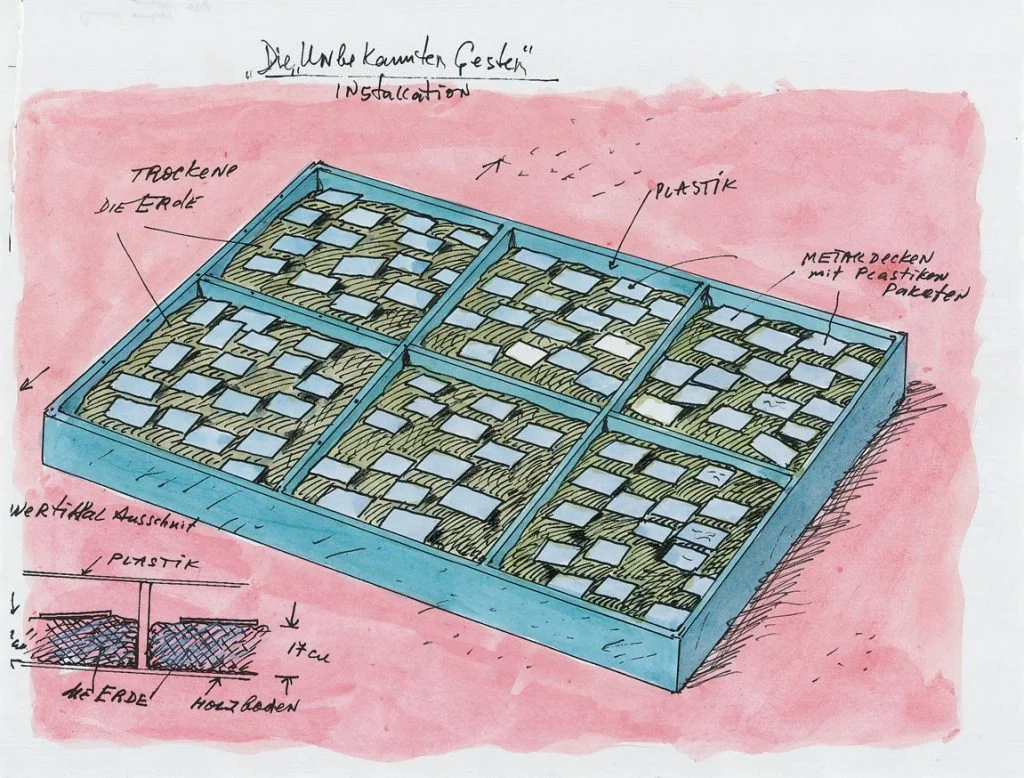 „Die „Unbekannten Gesten"
INstallation
TROCKENE
DIE ERDE
PLASTIK
METALDECKEN
mit Plastiken
Paketen
WERTIKAL Ausschnit
PLASTIK
17 cm
DIE ERDE
HOLZboden